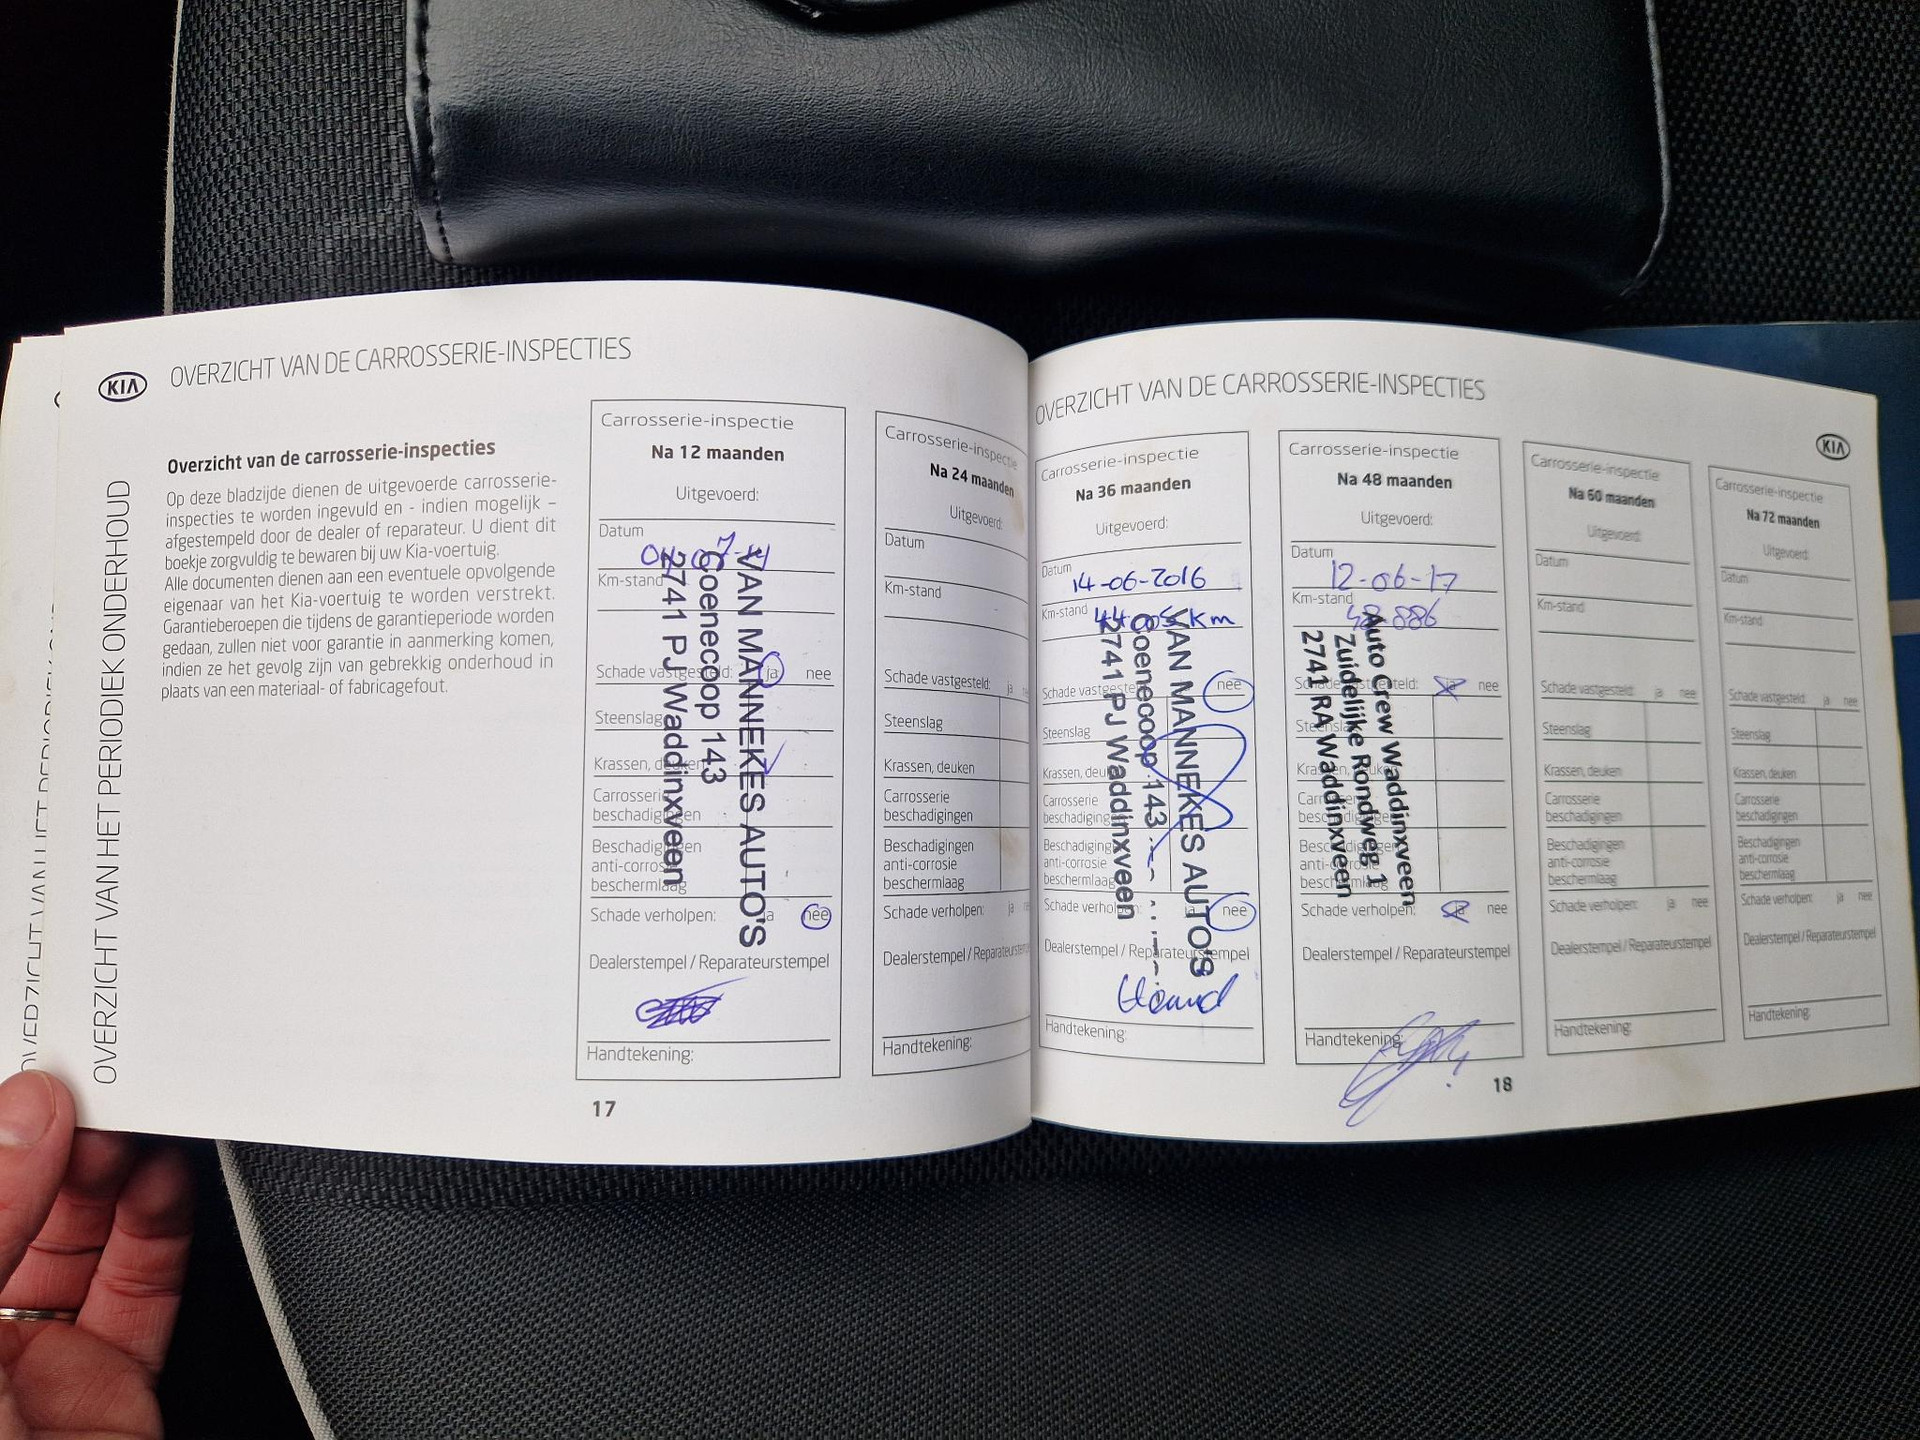 KIA
OVERZICHT VAN DE CARROSSERIE-INSPECTIES
OVERZICHT VAN HET PERIODIEK ONDERHOUD
Overzicht van de carrosserie-inspecties
Op deze bladzijde dienen de uitgevoerde carrosserie-
inspecties te worden ingevuld en - indien mogelijk –
afgestempeld door de dealer of reparateur. U dient dit
boekje zorgvuldig te bewaren bij uw Kia-voertuig.
Alle documenten dienen aan een eventuele opvolgende
eigenaar van het Kia-voertuig te worden verstrekt.
Garantieberoepen die tijdens de garantieperiode worden
gedaan, zullen niet voor garantie in aanmerking komen,
indien ze het gevolg zijn van gebrekkig onderhoud in
plaats van een materiaal- of fabricagefout.
Carrosserie-inspectie
Na 12 maanden
Uitgevoerd:
Datum
Km-stand
Schade vastgesteld: ja nee
Steenslag
Krassen, deuken
Carrosserie
beschadigingen
Beschadigingen
anti-corrosie
beschermlaag
Schade verholpen: ja nee
Dealerstempel / Reparateurstempel
Handtekening:
VAN MANNEKES AUTO'S
Coenecoop 143
2741 PJ Waddinxveen
17
Carrosserie-inspectie
Na 24 maanden
Uitgevoerd:
Datum
Km-stand
Schade vastgesteld: ja
Steenslag
Krassen, deuken
Carrosserie
beschadigingen
Beschadigingen
anti-corrosie
beschermlaag
Schade verholpen: ja
Dealerstempel / Reparateurstempel
Handtekening:
OVERZICHT VAN DE CARROSSERIE-INSPECTIES
KIA
Carrosserie-inspectie
Na 36 maanden
Uitgevoerd:
Datum
14-06-2016
Km-stand
km
Schade vastgesteld: nee
Steenslag
Krassen, deuken
Carrosserie
beschadigingen
Beschadigingen
anti-corrosie
beschermlaag
Schade verholpen: ja nee
Dealerstempel / Reparateurstempel
Handtekening:
VAN MANNEKES AUTO'S
Coenecoop 143
2741 PJ Waddinxveen
Carrosserie-inspectie
Na 48 maanden
Uitgevoerd:
Datum
12-06-17
Km-stand
48.886
Schade vastgesteld: ja nee
Steenslag
Krassen, deuken
Carrosserie
beschadigingen
Beschadigingen
anti-corrosie
beschermlaag
Schade verholpen: ja nee
Dealerstempel / Reparateurstempel
Handtekening:
Auto Crew Waddinxveen
Zuidelijke Rondweg 1
2741 RA Waddinxveen
18
Carrosserie-inspectie
Na 60 maanden
Uitgevoerd:
Datum
Km-stand
Schade vastgesteld: ja nee
Steenslag
Krassen, deuken
Carrosserie
beschadigingen
Beschadigingen
anti-corrosie
beschermlaag
Schade verholpen: ja nee
Dealerstempel / Reparateurstempel
Handtekening:
Carrosserie-inspectie
Na 72 maanden
Uitgevoerd:
Datum
Km-stand
Schade vastgesteld: ja nee
Steenslag
Krassen, deuken
Carrosserie
beschadigingen
Beschadigingen
anti-corrosie
beschermlaag
Schade verholpen: ja nee
Dealerstempel / Reparateurstempel
Handtekening: